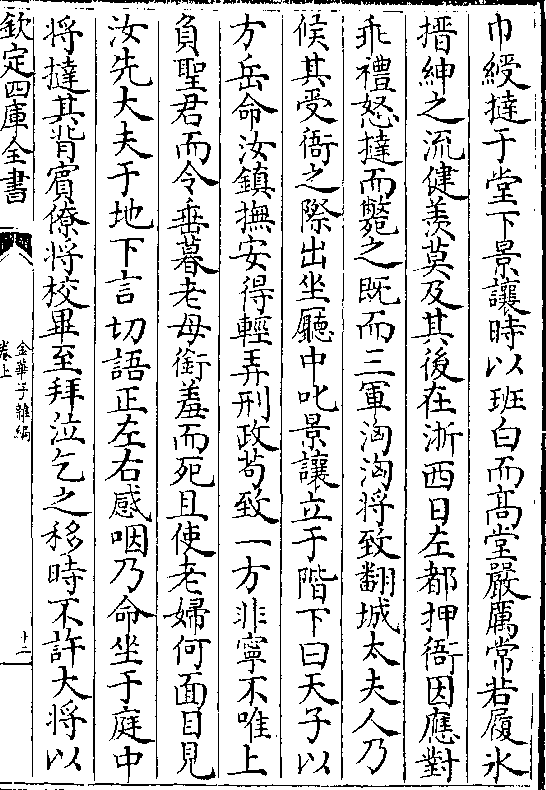 巾綬撻于堂下景讓時以班白而髙堂嚴厲常若履氷
搢紳之流健羡莫及其後在浙西日左都押衙因應對
乖禮怒撻而斃之既而三軍洶洶将致翻城太夫人乃
候其受衙之際出坐廳中叱景讓立于階下曰天子以
方岳命汝鎮撫安得輕弄刑政茍致一方非寧不唯上
負聖君而令垂暮老母銜羞而死且使老婦何面目見
汝先大夫于地下言切語正左右感咽乃命坐于庭中
将撻其背賓僚将校畢至拜泣乞之移時不許大将以
欽定四庫全書
金華子雜編
卷上
十二